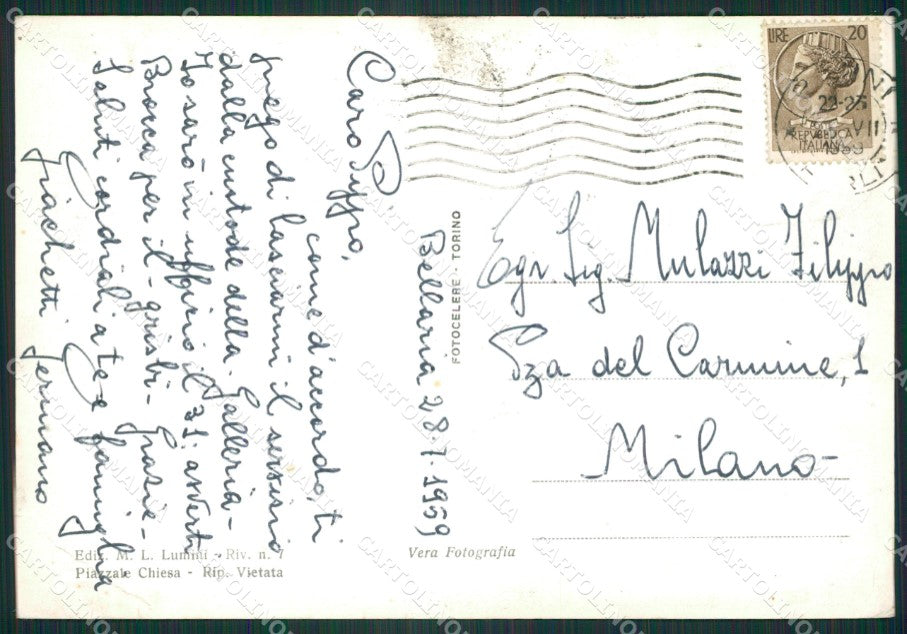 Bellaria 28-7-1959
Caro Pippo,
come d'accordo, ti
prego di lasciarmi il servizio
dalla custode della Galleria-
Io sarò in ufficio il 31. avverti
Brosca per il - grisbi - Grazie-
Saluti cordiali a te e famiglia
Giachetti Germano
Egr. Sig. Mulazzi Filippo
Pza del Carmine, 1
Milano
LIRE 20
REPVBBLICA
ITALIANA
22-23
VII
1959
FOTOCELERE - TORINO
Vera Fotografia
Ediz. M. L. Lummi - Riv. n. 7
Piazzale Chiesa - Rip. Vietata
CARTOLINOMANIA